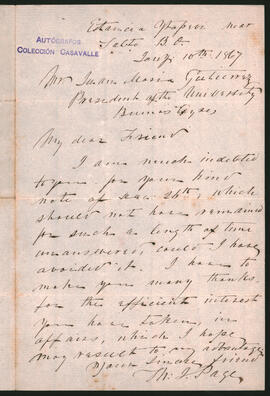 AUTÓGRAFOS
COLECCIÓN CASAVALLE
Estancia near
Salto B. A.
Jany 10th 1867
Mr Juan Maria Gutierrez
President of the University
Buenos Ayres
My dear Friend
I am much indebted
to you for your kind
note of 26th, which
should not have remained
for such a length of time
unanswered, could I have
avoided it. I have to
make you many thanks
for the efficient interest
you have taken in
affairs, which I hope
may result to my advantage
Your sincere friend
Th. J. Page